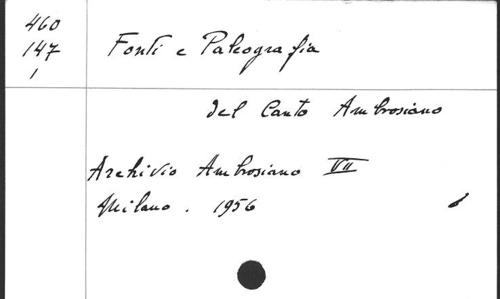 460
147
1
Fonti e Paleografia
del Canto Ambrosiano
Archivio Ambrosiano VII
Milano. 1956